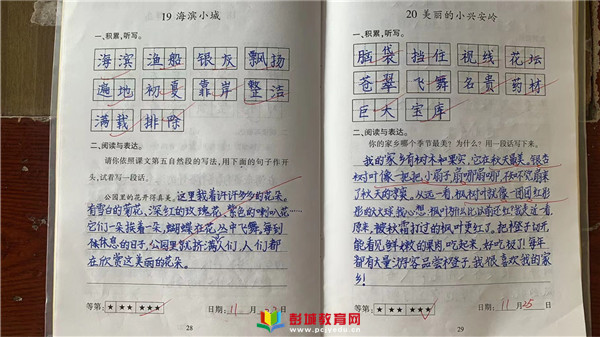 19 海滨小城
一、积累,听写。
海滨 渔船 银灰 飘扬
遍地 初夏 靠岸 整洁
满载 排除
二、阅读与表达。
请你依照课文第五自然段的写法,用下面的句子作开
头,试着写一段话。
公园里的花开得真美。这里栽着许许多多的花朵。
有雪白的菊花、深红的玫瑰花、紫色的喇叭花……
它们一朵挨着一朵,蝴蝶在花丛中飞舞,每到
休息的日子,公园里就挤满人们,人们都
在欣赏这美丽的花朵。
等第: ★ ★★ ★★★
日期: 11月
28
20 美丽的小兴安岭
一、积累,听写。
脑袋 挡住 视线 花坛
苍翠 飞舞 名贵 药材
巨大 宝库
二、阅读与表达。
你的家乡哪个季节最美?为什么?用一段话写下来。
我的家乡有树木和果实,它在秋天最美。银杏
树叶像一把把小扇子,扇哪扇哪,
了秋天的凉爽。从远一看,枫树叶就像一团团红彤
彤的大火球,我心想:枫叶
原来,被秋霜打过的枫叶更红了。把橙子切开,
能看见鲜嫩的果肉,吃起来,好吃极了!每年
都有大量游客品尝橙子,我很喜欢我的家
乡!
等第: ★ ★★ ★★★
日期: 11月25日
29
彭城教育网
www.pcjyedu.cn